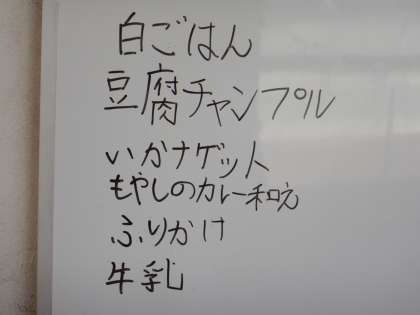 白ごはん
豆腐チャンプル
いかナゲット
もやしのカレー和え
ふりかけ
牛乳